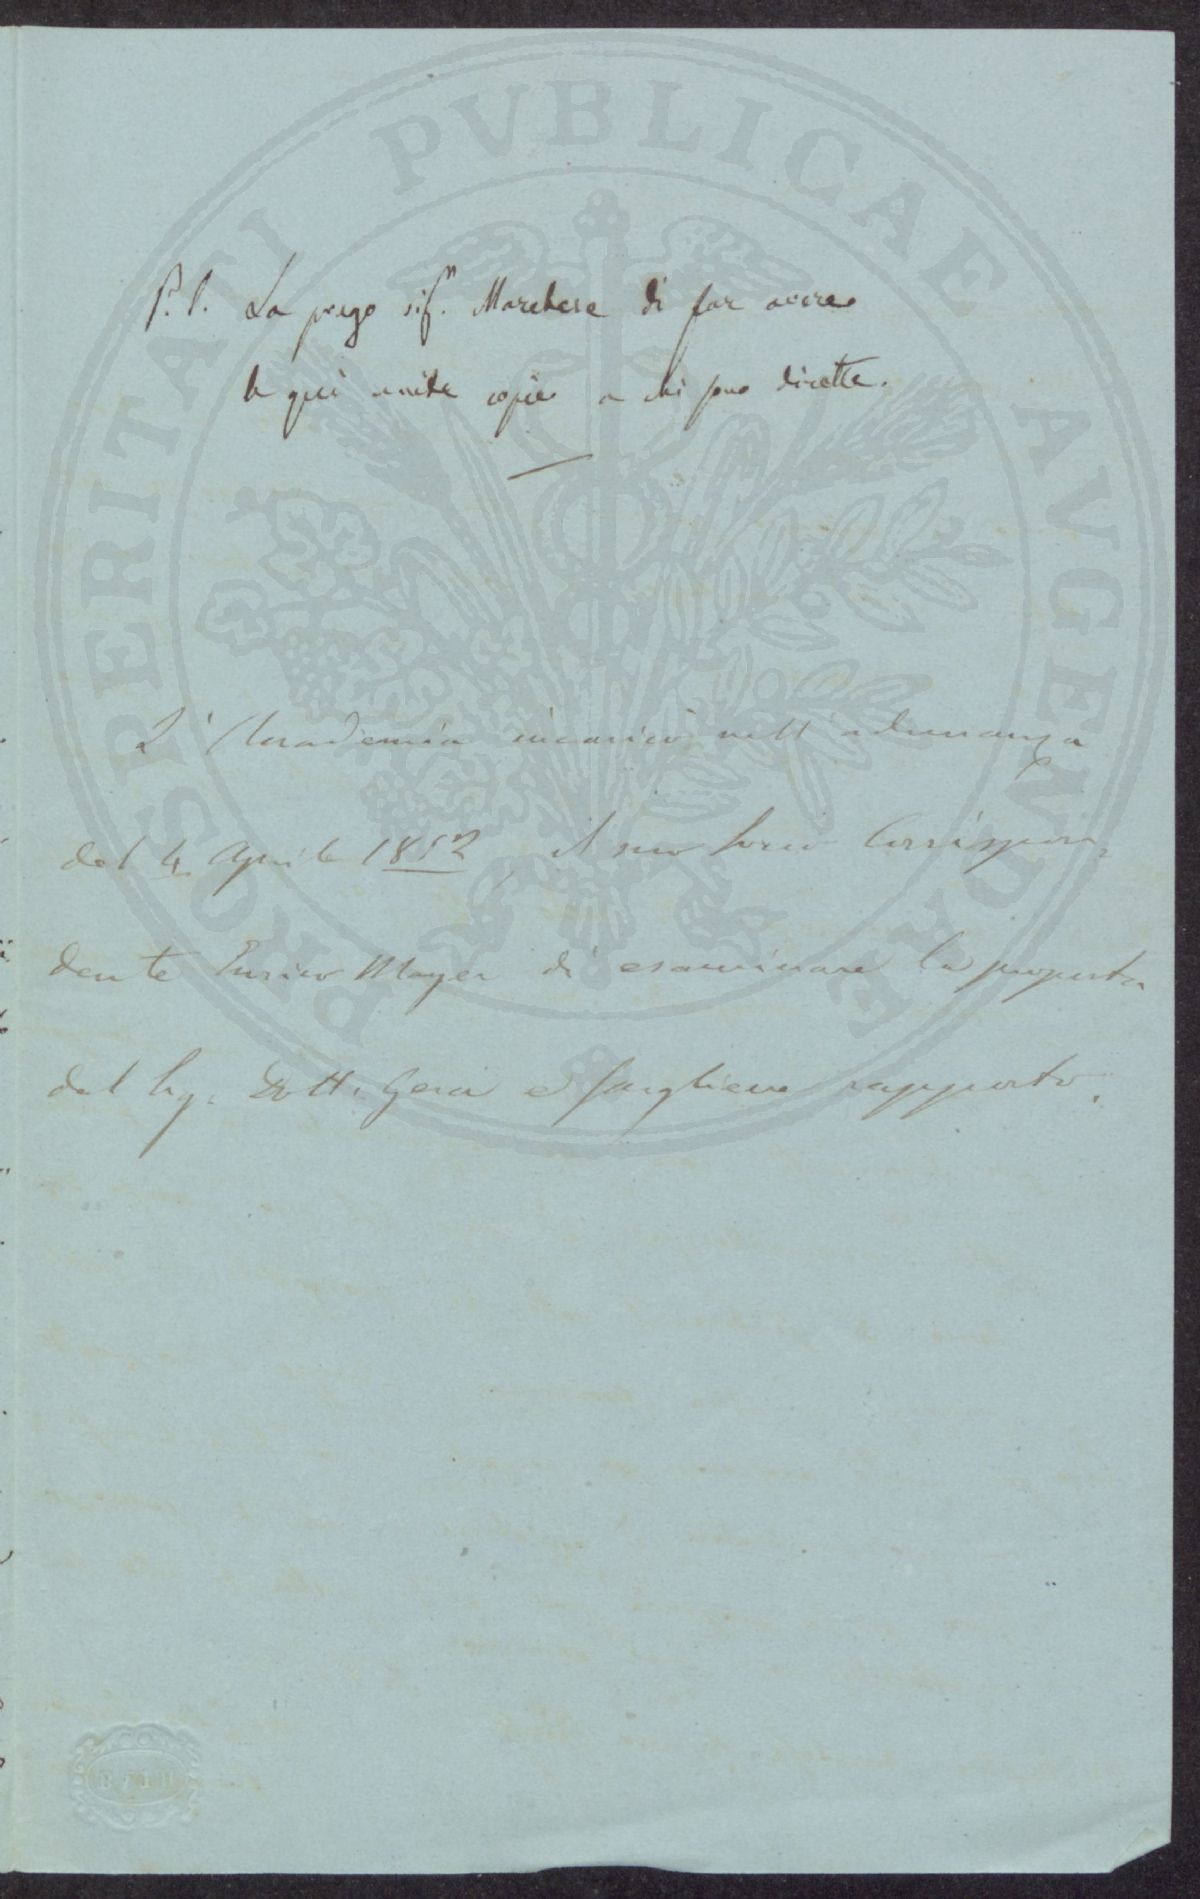 P.S. La prego sigʳ. Marchese di far avere
le qui unite copie a chi sono dirette.
L'Accademia incaricò nell'adunanza
del 4 Aprile 1852, il suo Socio Corrispon-
dente Enrico Mayer di esaminare la proposta
del Sig. Dott. Gera e farghiene rapporto.
PROSPERITATI PVBLICAE AVGENDAE
BATH